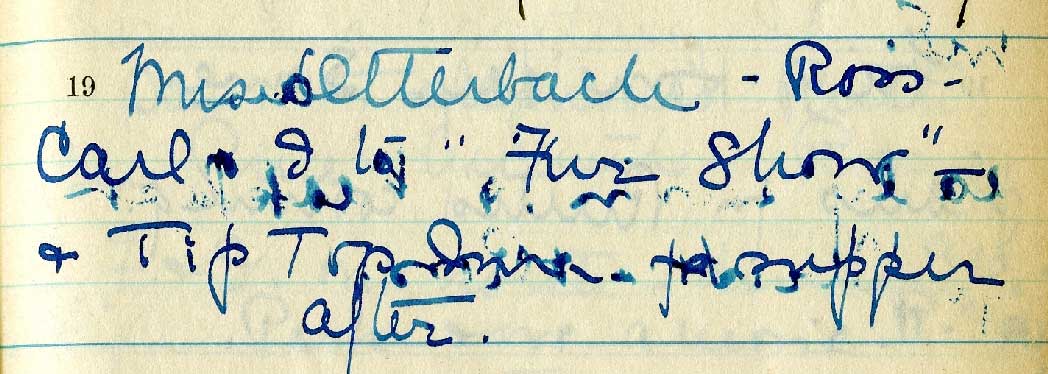 19 Miss Etterbach - Ross -
Carl & I to "Fur Show"
& Tip Top Inn for supper
after.